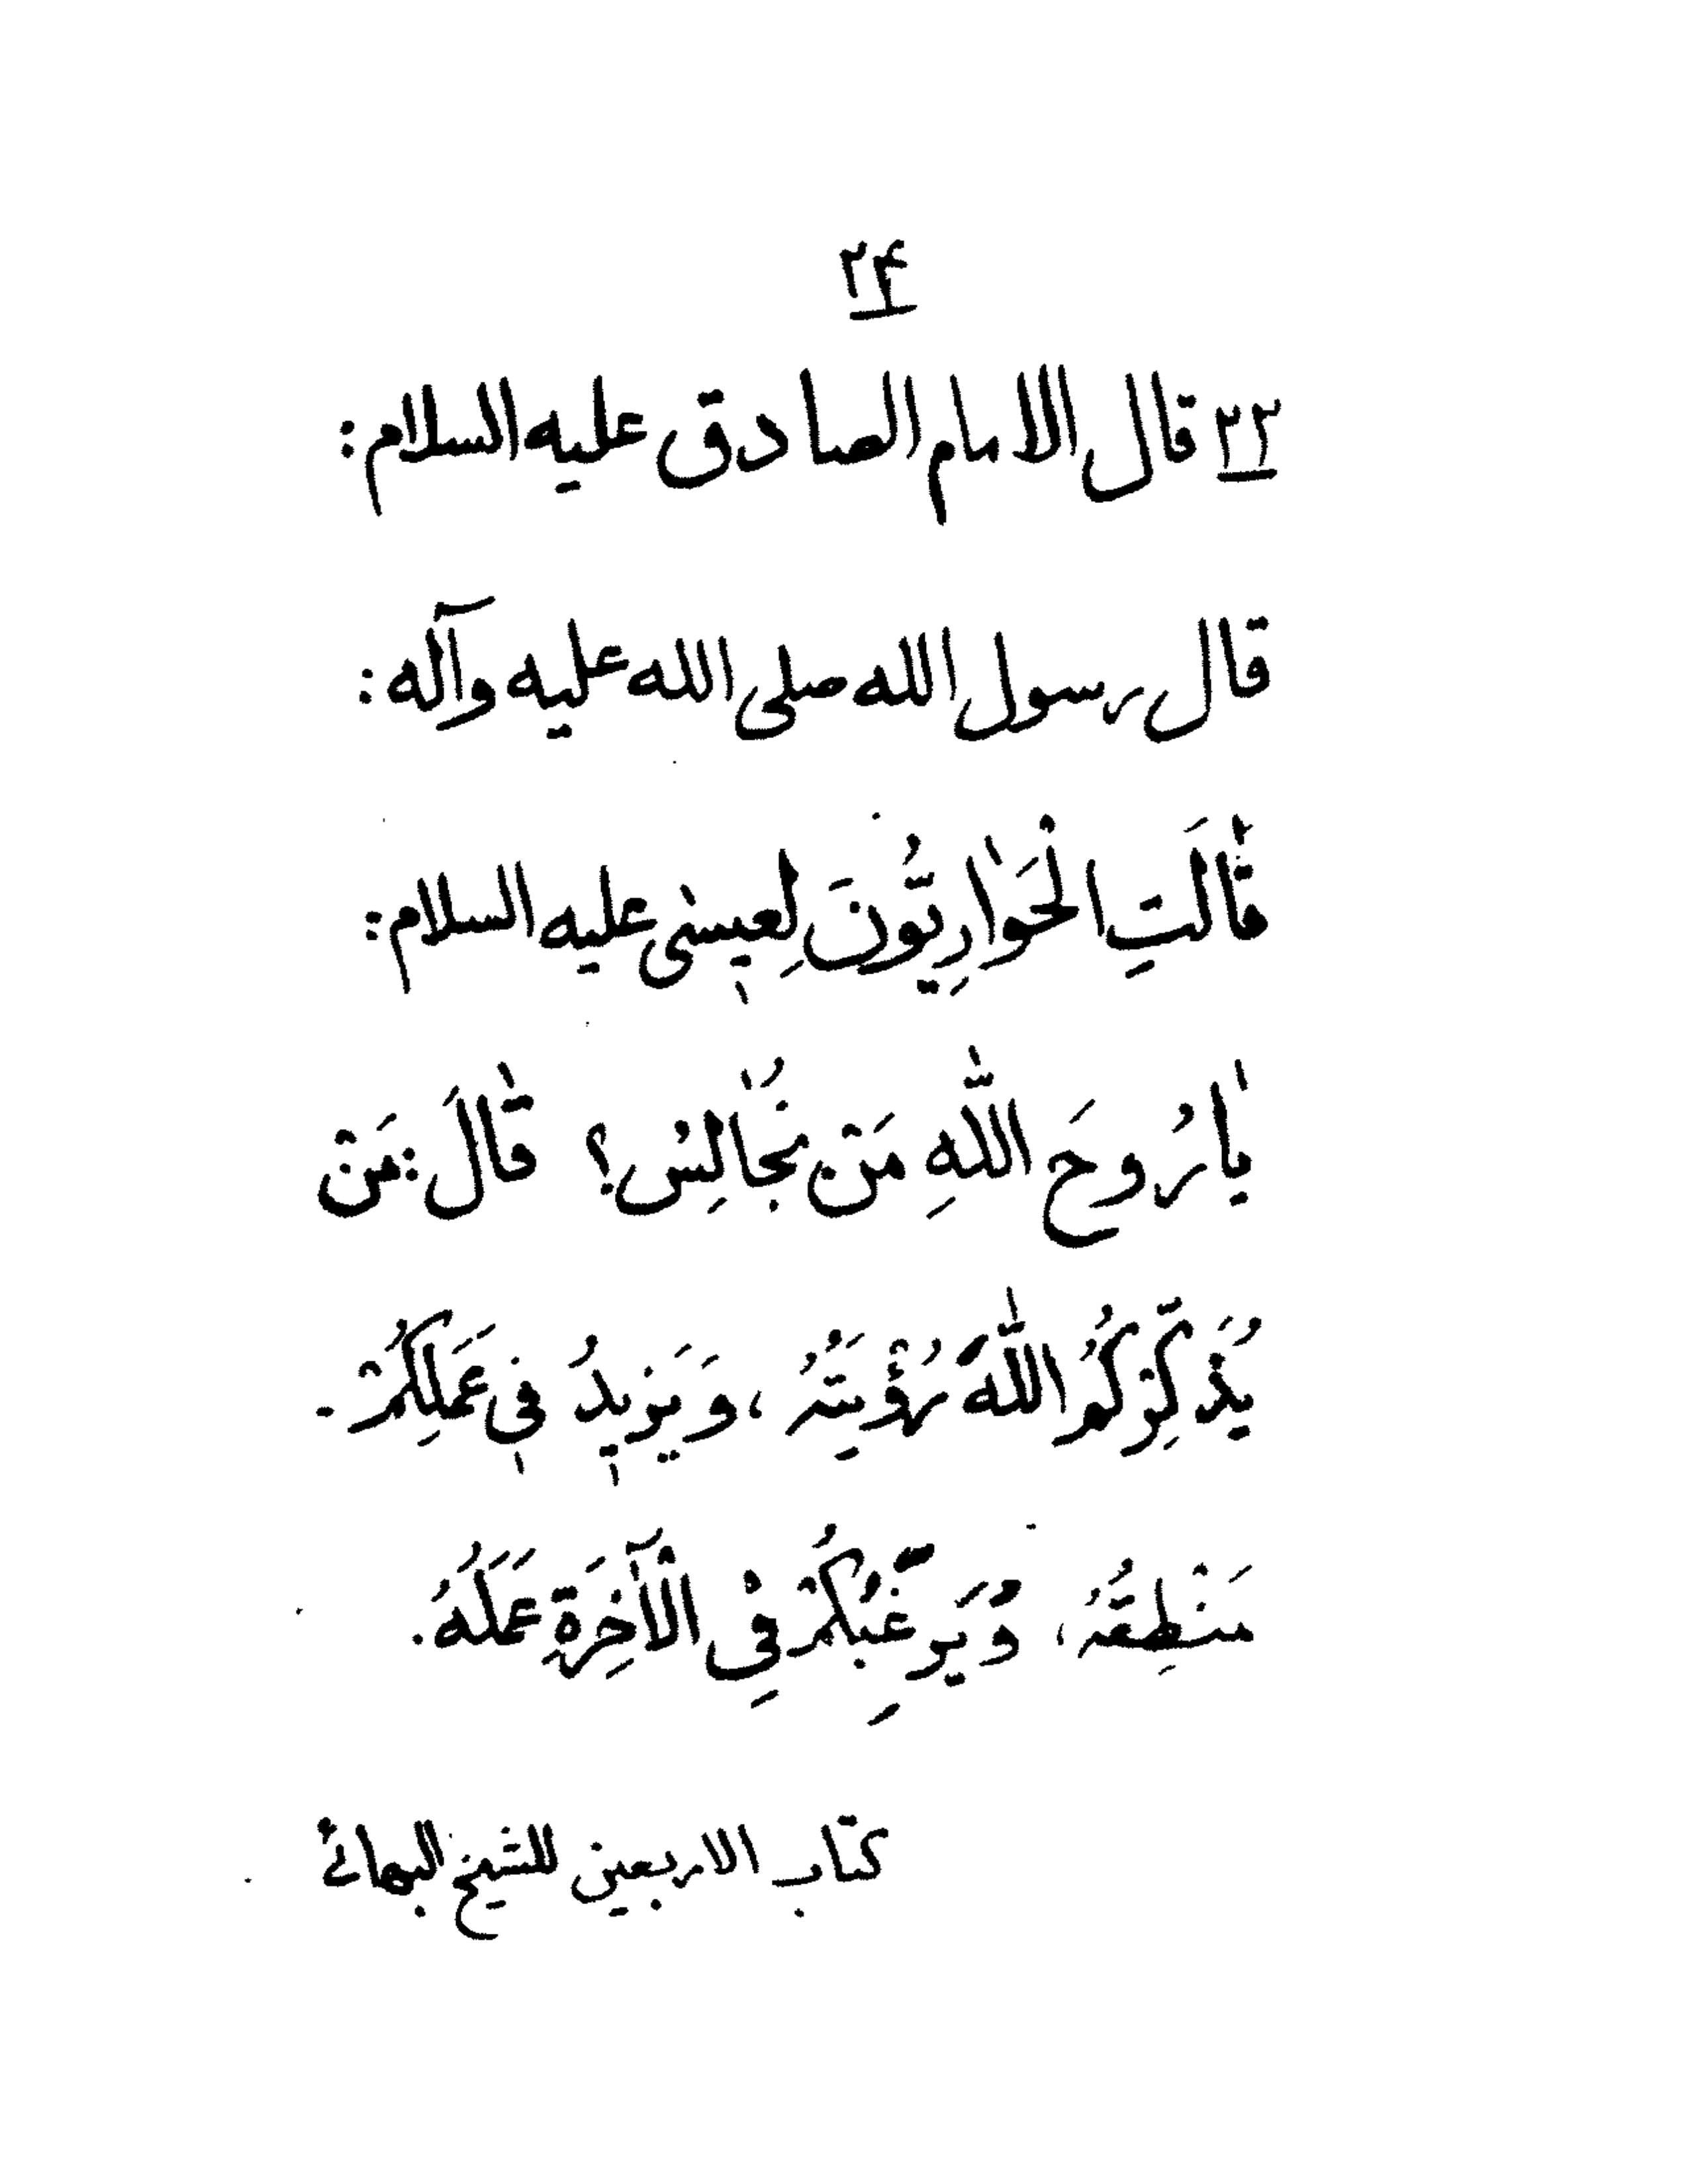 ۲۴
۲۳ قال الامام الصادق عليه السلام:
قال رسول الله صلى الله عليه وآله:
قٰالَتِ الْحَوٰارِيُّونَ لِعيسىٰ عليه السلام:
يٰا رُوحَ اللّٰهِ مَنْ نُجٰالِسُ؟ قٰالَ: مَنْ
يُذَكِّرُكُمُ اللّٰهَ رُؤْيَتُهُ، وَيَزيدُ في عَمَلِكُمْ -
مَنْطِقُهُ، وَيُرَغِّبُكُمْ فِي الْآخِرَةِ عَمَلُهُ.
كتاب الاربعين للشيخ البهائى